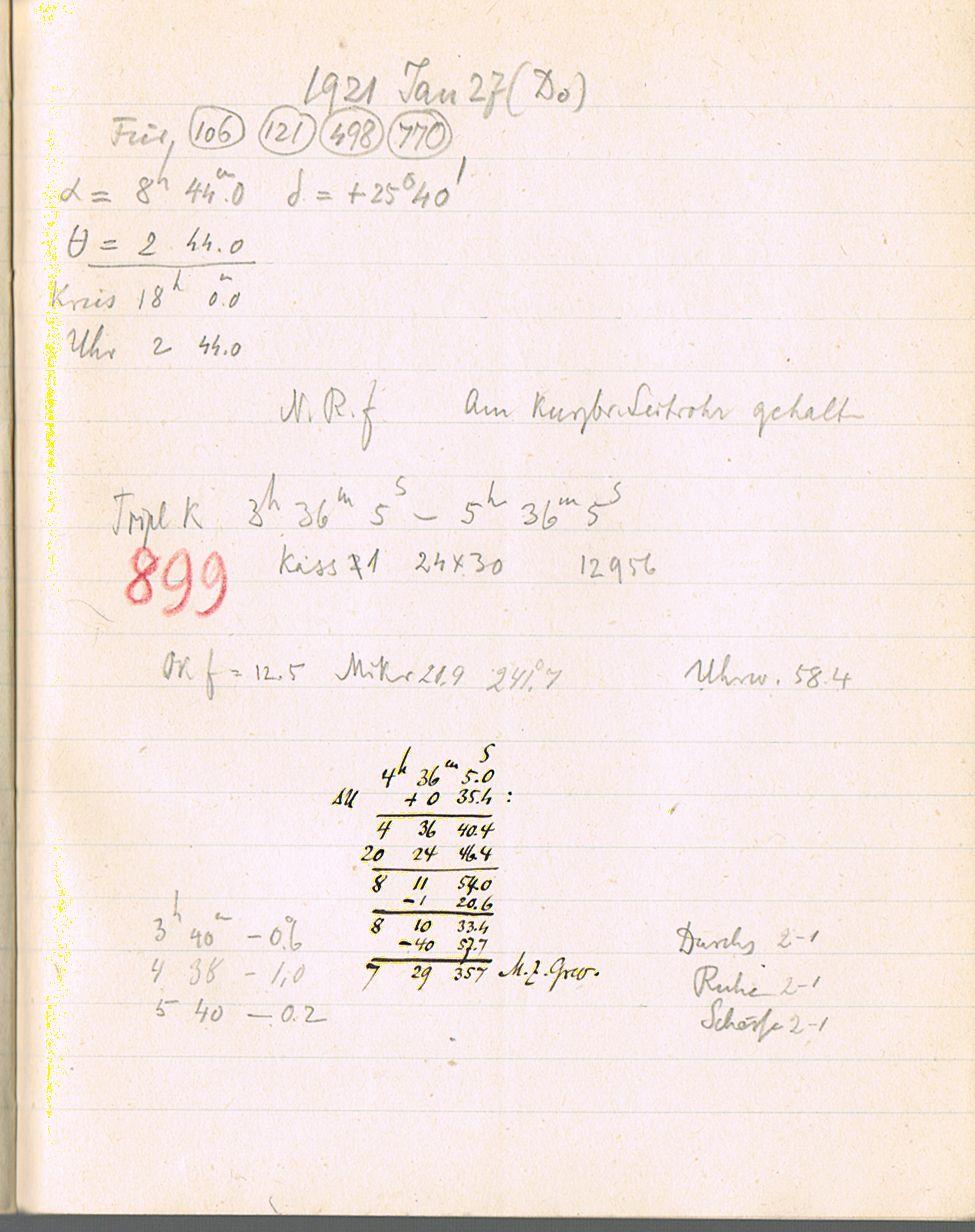 1921 Jan 27 (Do)
Für, 106 121 498 770
α = 8h 44m.0 δ = +25°40'
θ = 2 44.0
Kreis 18h 0m.0
Uhr 2 44.0
N. R. f Am Kurzbr. Leitrohr gehalt
Tripl K 3h 36m 5s – 5h 36m 5s
Kass 1 24×30 12956
899
OK f = 12.5 Mikr 21.9 241°.7 Uhrw. 58.4
4h 36m 5.0s
ΔU + 0 35.4 :
4 36 40.4
20 24 46.4
8 11 54.0
-1 20.6
8 10 33.4
-40 57.7
7 29 35.7 M. Z. Grw.
3h 40m – 0.6
4 38 – 1,0
5 40 – 0.2
Durchs 2-1
Ruhe 2-1
Schärfe 2-1